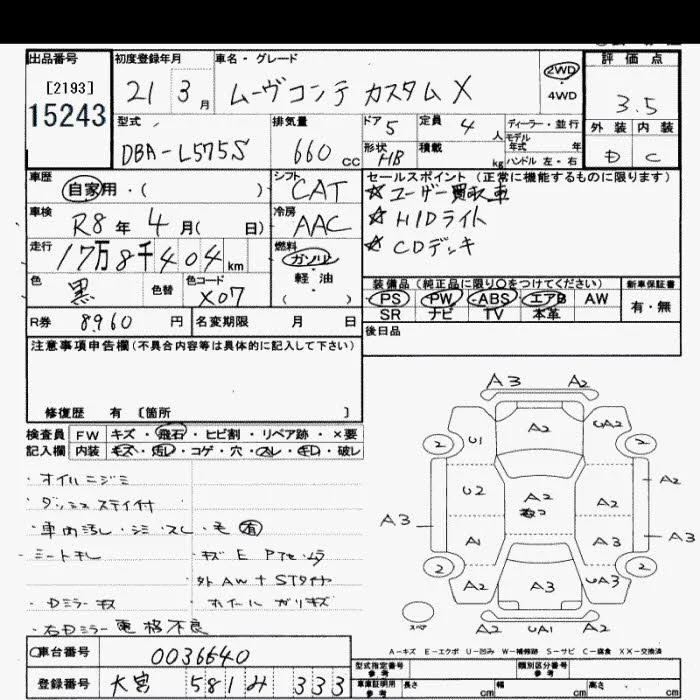 出品番号 初度登録年月 車名・グレード 評価点
[2193]
15243
21 3月 ムーヴコンテ カスタム X 2WD 4WD 3.5
外装 内装
D C
型式 排気量 ドア 5 定員 4人 ディーラー・並行
DBA-L575S 660cc 形状 HB 積載 kg モデル年式 年式 ハンドル 左・右
車歴 シフト セールスポイント (正常に機能するものに限ります)
自家用・( ) CAT ☆ユーザー買取車
車検 冷房 ☆HIDライト
R8年 4月( 日) AAC ☆CDデッキ
走行 燃料
17万8千404km ガソリン・軽油 ( )
色 色替 色コード
黒 X07
装備品 (純正品に限り○をつけてください) 新車保証書
PS PW ABS エアB AW 有・無
SR ナビ TV 本革
R券 8960円 名変期限 月 日 後日品
注意事項申告欄(不具合内容等は具体的に記入して下さい)
修復歴 有 〔箇所 〕
検査員 FW キズ・飛石・ヒビ割・リペア跡・×要
記入欄 内装 キズ・汚レ・コゲ・穴・スレ・キレ・破レ
・オイルニジミ
・ダッシュステイ付
・車内汚レ・シミ・スレ・毛有
・シートキレ
・Dミラーキズ
・ホイールガリキズ
・右Dミラー電格不良
A3 A2
U1 A2 UA2
2 2
U2 A2 A2 A2
A3 A1 A3 A3
2 2
A2 A3 UA3
スペア A2 UA1 A2
A-キズ E-エクボ U-凹み W-補修跡 S-サビ C-腐食 XX-交換済
車台番号 0036640
登録番号 大宮 581 み 333
型式指定番号 参考 類別区分番号 参考
車庫証明用 参考 長さ cm 幅 cm 高さ cm